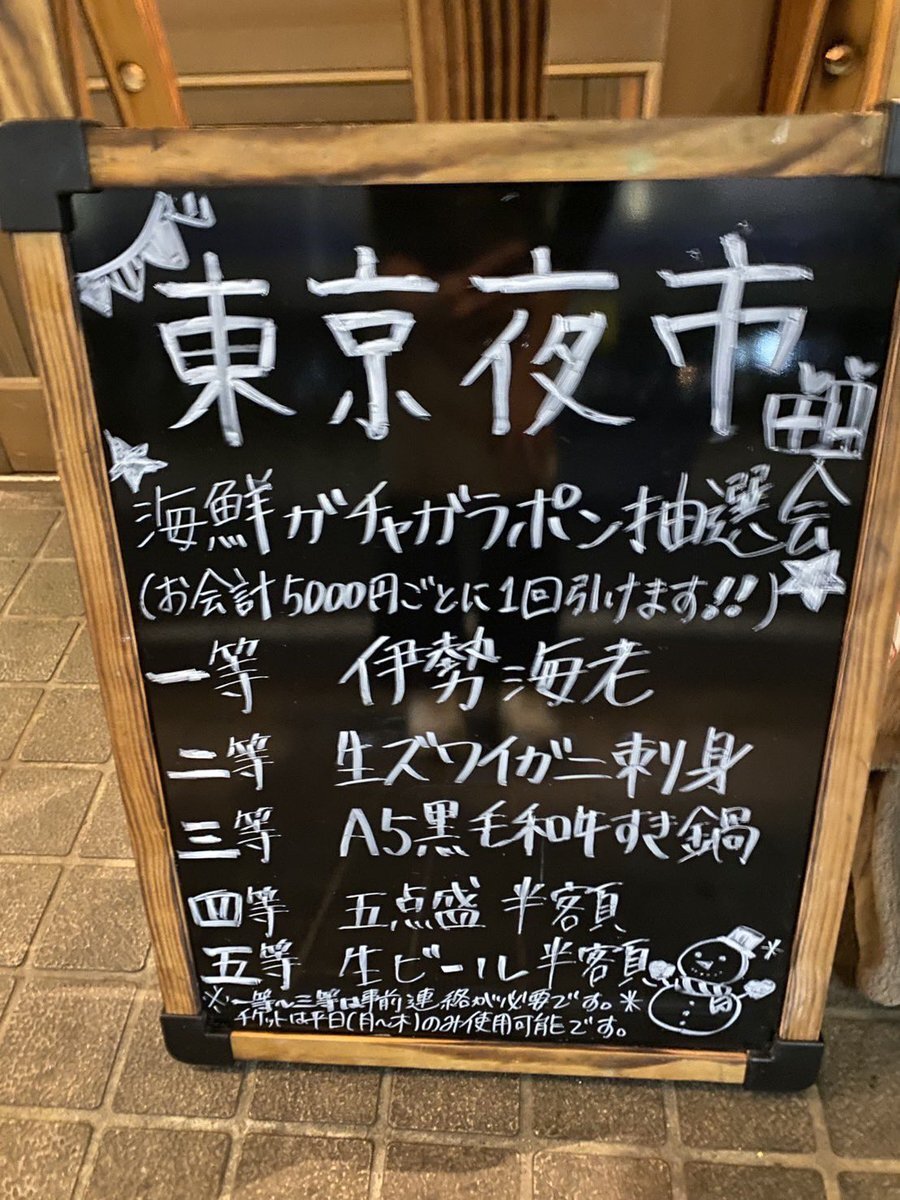 東京夜市
海鮮ガチャガラポン抽選会
(お会計5000円ごとに1回引けます!!)
一等 伊勢海老
二等 生ズワイガニ刺身
三等 A5黒毛和牛すき鍋
四等 五点盛 半額
五等 生ビール半額
※一等～三等は事前連絡が必要です。
チケットは平日(月～木)のみ使用可能です。